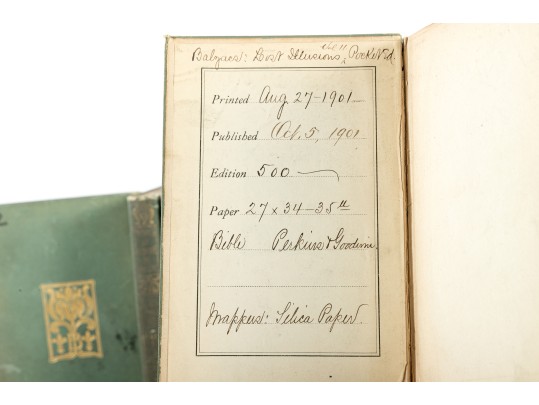 Balzac's: Lost Illusions, Vol II, Pocket Ed.
Printed Aug 27-1901
Published Oct. 5, 1901
Edition 500
Paper 27 x 34-35 lb
Bible Perkins & Goodwin
Wrappers: Silica Paper.